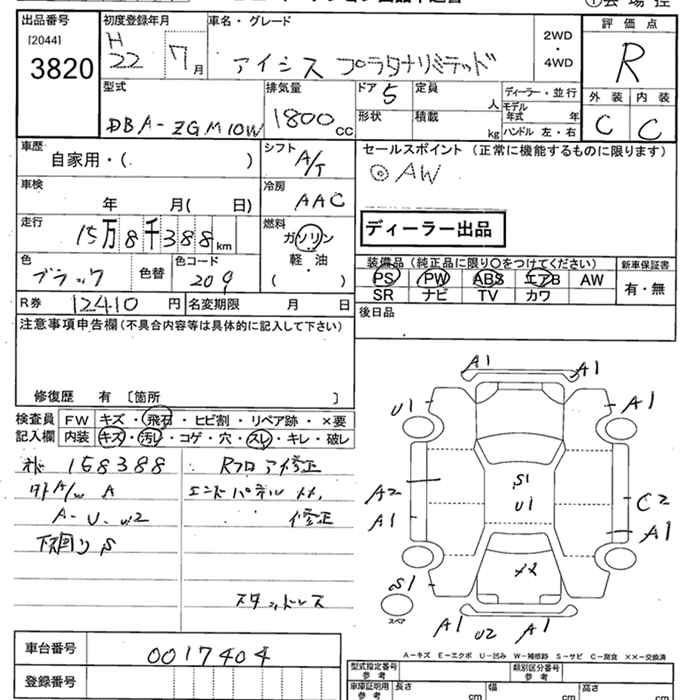 ①会場控
出品番号
[2044]
3820
初度登録年月
H
22 7月
車名・グレード
アイシス プラタナリミテッド
2WD・4WD
評価点
R
外装 内装
C C
型式
DBA-ZGM10W
排気量
1800cc
ドア 5
定員 人
形状
積載 kg
ディーラー・並行
モデル年式 年
ハンドル 左・右
車歴
自家用・( )
シフト
A/T
セールスポイント (正常に機能するものに限ります)
◎AW
車検
年 月( 日)
冷房
AAC
走行
15万8千388km
燃料
ガソリン
軽・油
( )
ディーラー出品
色
ブラック
色替
色コード
209
装備品(純正品に限り○をつけてください)
PS PW ABS エアB AW
SR ナビ TV カワ
新車保証書
有・無
R券 12410円
名変期限 月 日
後日品
注意事項申告欄(不具合内容等は具体的に記入して下さい)
修復歴 有 〔箇所 〕
検査員記入欄
FW キズ・飛石・ヒビ割・リペア跡・×要
内装 キズ・汚レ・コゲ・穴・スレ・キレ・破レ
158388
A/W A
A-U-W2
下回りS
Rフロア修正
エンドパネル
修正
スタッドレス
A1
A1
U1
A1
A2
A1
S1
U1
C2
A1
S1
スペア
A1 U2 A1
A-キズ E-エクボ U-凹み W-補修跡 S-サビ C-腐食 ××-交換済
車台番号
0017404
登録番号
型式指定番号 参考
類別区分番号 参考
車庫証明用 参考
長さ cm
幅 cm
高さ cm